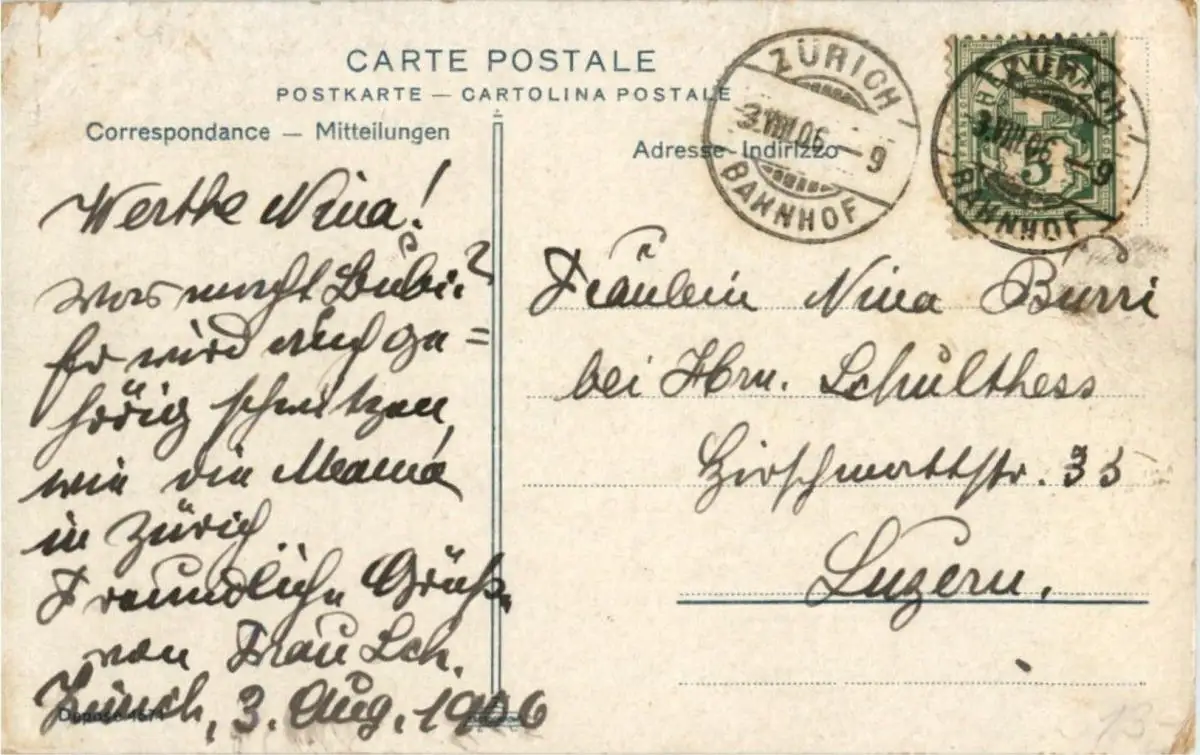 CARTE POSTALE
POSTKARTE — CARTOLINA POSTALE
Correspondance — Mitteilungen
Adresse - Indirizzo
ZÜRICH
3.VIII.06.–9
BAHNHOF
ZÜRICH
3.VIII.06.–9
BAHNHOF
5
Werthe Nina!
Was macht Bubi?
Er wird auch ge=
hörig schwitzen,
wie die Mama
in Zürich
Freundliche Grüße
von Frau Sch.
Zürich, 3. Aug. 1906
Fräulein Nina Burri
bei Hrn. Schulthess
Hirschmattstr. 35
Luzern.
13-